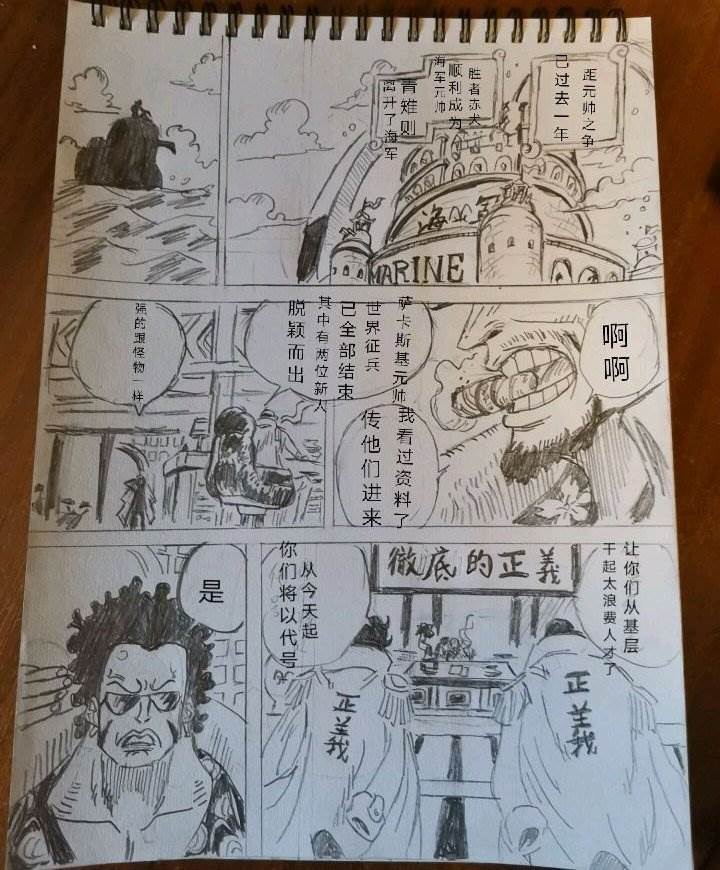 距元帅之争
已过去一年
胜者赤犬
顺利成为
海军元帅
青难则
离开了海军
MARINE
啊
啊
萨卡斯基元帅
世界征兵
已全部结束
其中有两位新人
脱颖而出
强的跟怪物一样
我看过资料了
传他们进来
让你们从基层
干起太浪费人才了
徹底的正義
正義
正義
从今天起
你们将以代号
是